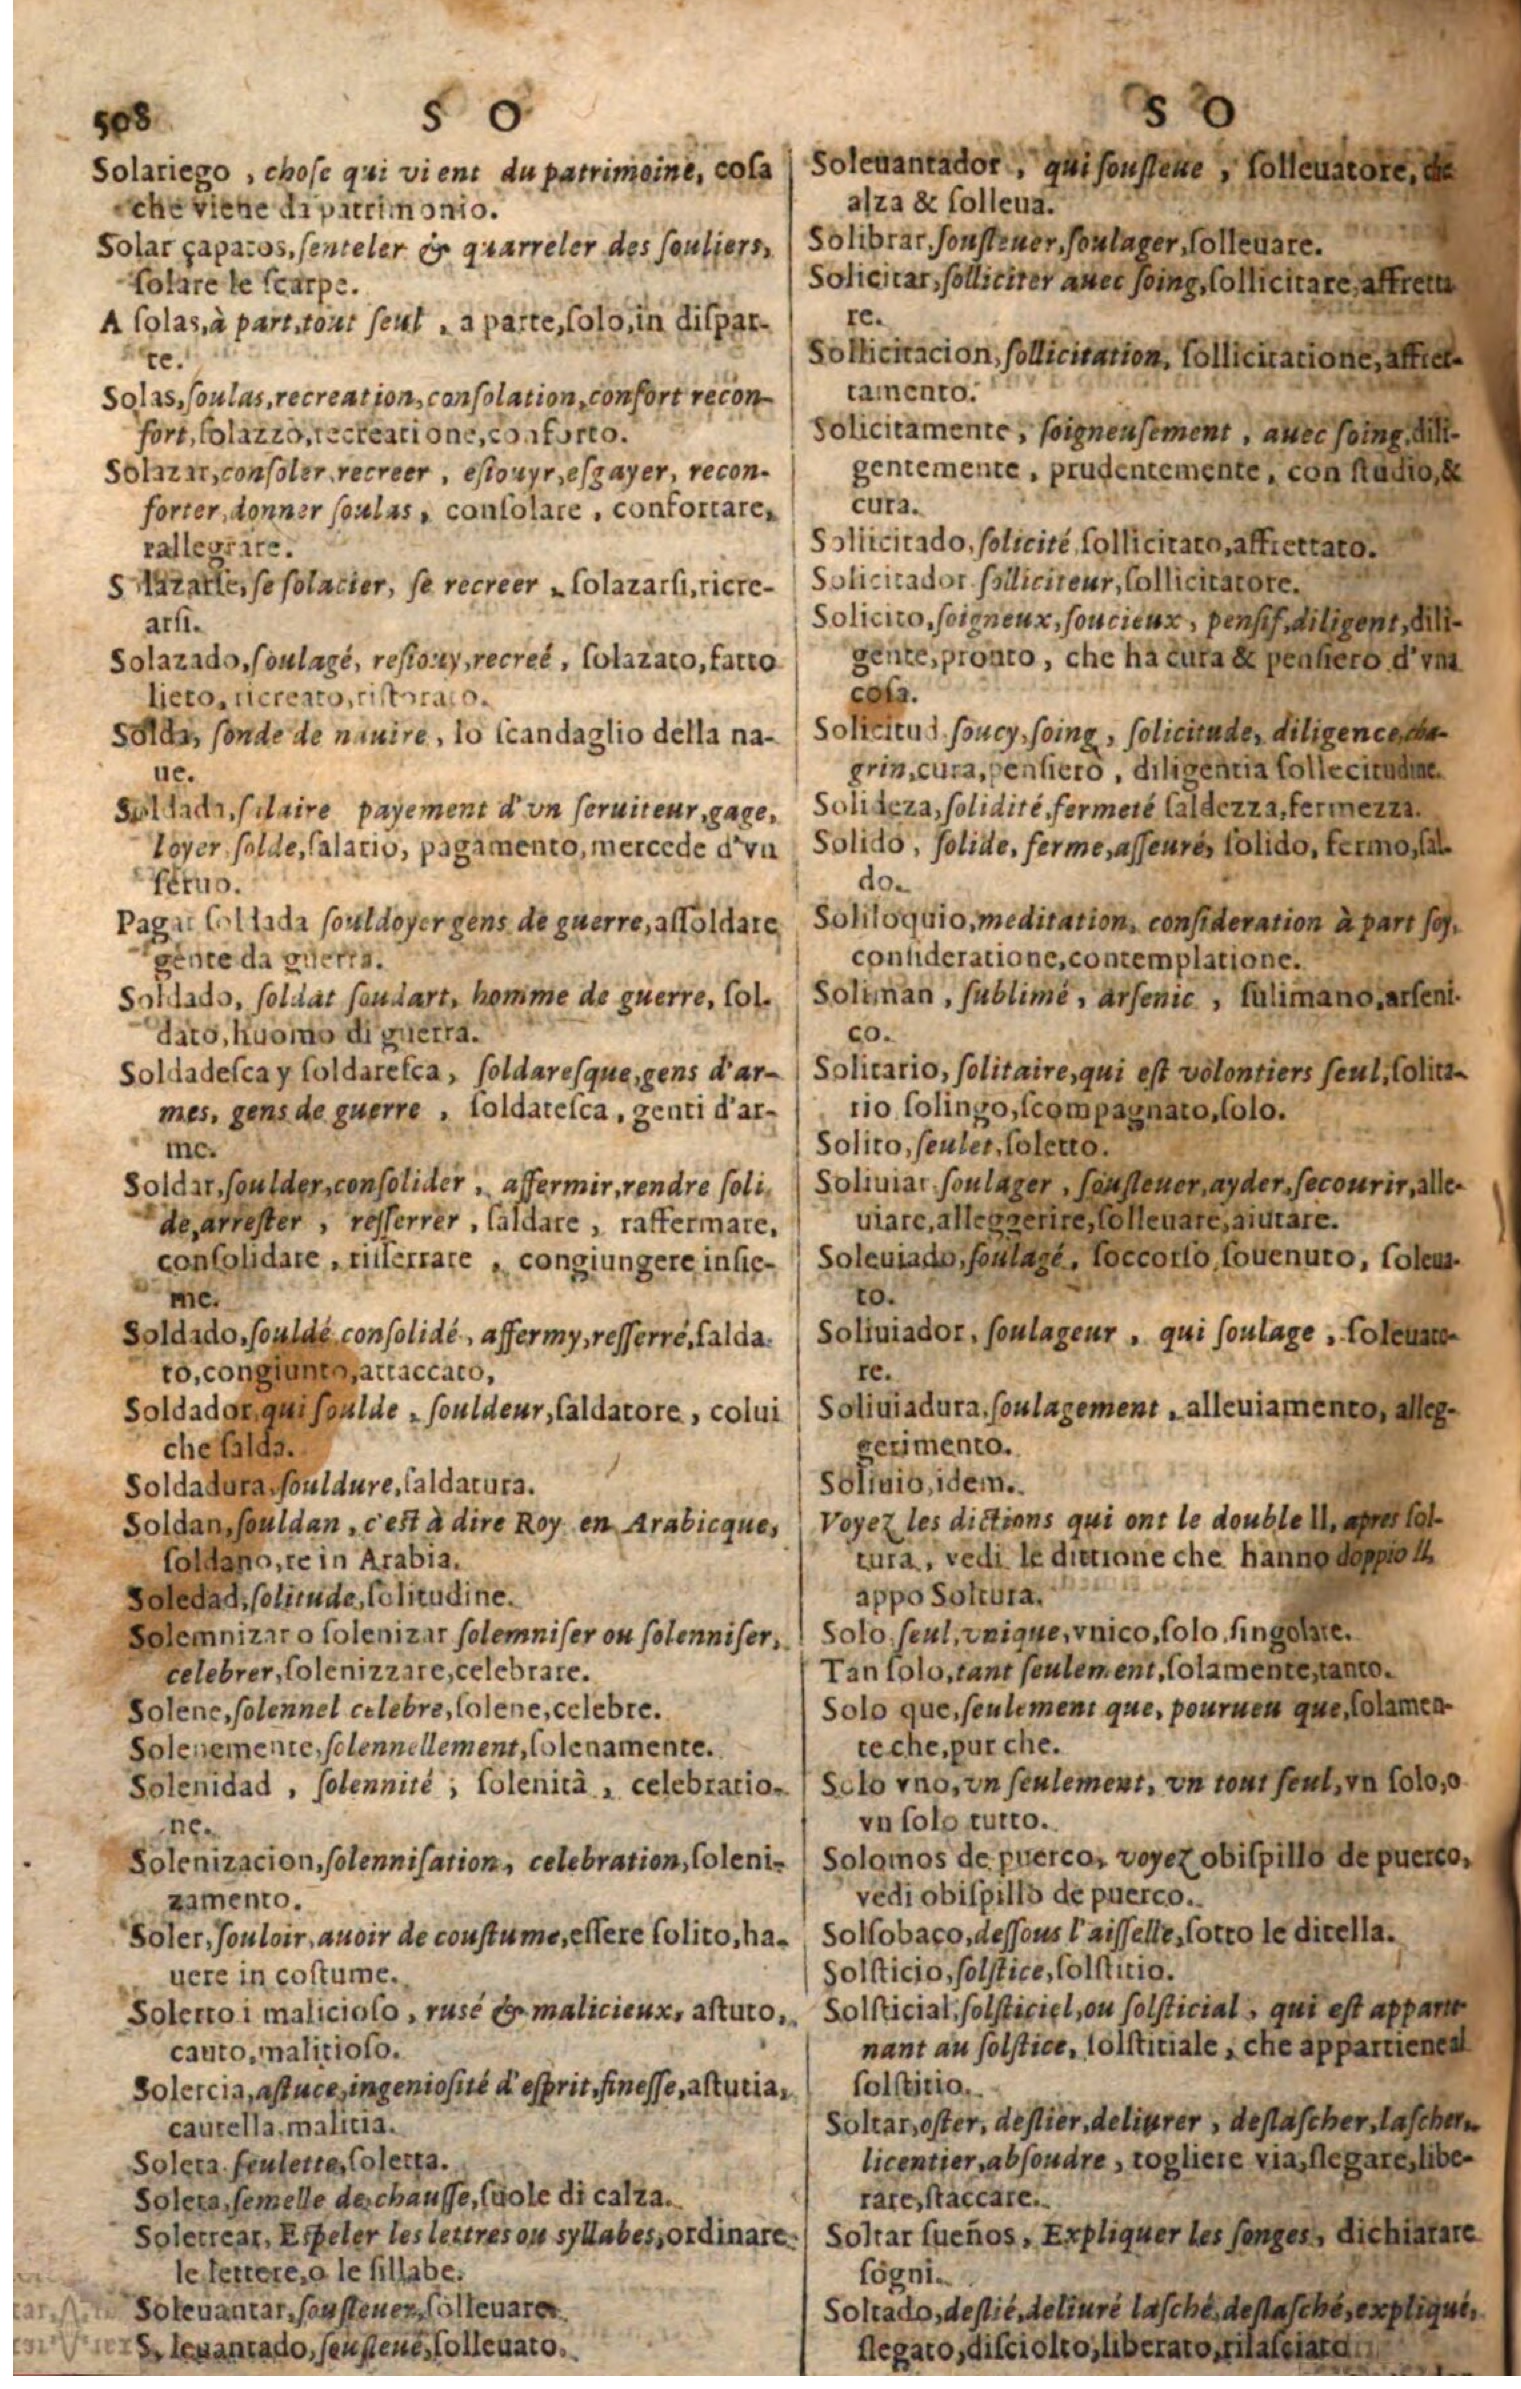 508
S O
Solariego, chose qui vient du patrimoine, cosa
che viene di patrimonio.
Solar çapatos, senteler & quarreler des souliers,
solare le scarpe.
A solas, à part, tout seul, a parte, solo, in dispar-
te.
Solas, soulas, recreation, consolation, confort recon-
fort, solazzo, recreatione, conforto.
Solazar, consoler, recreer, esiouyr, esgayer, recon-
forter, donner soulas, consolare, confortare,
rallegrare.
S lazarse, se solacier, se recreer, solazarsi, ricre-
arsi.
Solazado, soulagé, resiouy, recreé, solazato, fatto
lieto, ricreato, ristorato.
Solda, sonde de nauire, lo scandaglio della na-
ue.
Soldada, salaire payement d'vn seruiteur, gage,
loyer solde, salario, pagamento, mercede d'vn
seruo.
Pagar soldada souldoyer gens de guerre, assoldare
gente da guerra.
Soldado, soldat soudart, homme de guerre, sol-
dato, huomo di guerra.
Soldadesca y soldaresca, soldaresque, gens d'ar-
mes, gens de guerre, soldatesca, genti d'ar-
me.
Soldar, soulder, consolider, affermir, rendre soli
de, arrester, resserrer, saldare, raffermare,
consolidare, risserrare, congiungere insie-
me.
Soldado, souldé consolidé, affermy, resserré, salda
to, congiunto, attaccato,
Soldador, qui soulde, souldeur, saldatore, colui
che salda.
Soldadura, souldure, saldatura.
Soldan, souldan, c'est à dire Roy en Arabicque,
soldano, re in Arabia.
Soledad, solitude, solitudine.
Solemnizar o solenizar solemniser ou solenniser,
celebrer, solenizzare, celebrare.
Solene, solennel celebre, solene, celebre.
Solenemente, solennellement, solenamente.
Solenidad, solennité, solenità, celebratio-
ne.
Solenizacion, solennisation, celebration, soleni-
zamento.
Soler, souloir, auoir de coustume, essere solito, ha-
uere in costume.
Solerto i malicioso, rusé & malicieux, astuto,
cauto, malitioso.
Solercia, astuce, ingeniosité d'esprit, finesse, astutia,
cautella, malitia.
Soleta seulette, soletta.
Soleta, semelle de chausse, suole di calza.
Soletrear, Espeler les lettres ou syllabes, ordinare
le lettere, o le sillabe.
Soleuantar, sousleuer, solleuare.
S leuantado, sousleué, solleuato.
S O
Soleuantador, qui sousleue, solleuatore, che
alza & solleua.
Solibrar, sousleuer, soulager, solleuare.
Solicitar, solliciter auec soing, sollicitare, affretta
re.
Sollicitacion, sollicitation, sollicitatione, affret-
tamento.
Solicitamente, soigneusement, auec soing, dili-
gentemente, prudentemente, con studio, &
cura.
Sollicitado, solicité sollicitato, affrettato.
Solicitador solliciteur, sollicitatore.
Solicito, soigneux, soucieux, pensif, diligent, dili-
gente, pronto, che ha cura & pensiero d'vna
cosa.
Solicitud soucy, soing, solicitude, diligence, cha-
grin, cura, pensiero, diligentia sollecitudine.
Solideza, solidité, fermeté saldezza, fermezza.
Solido, solide, ferme, asseuré, solido, fermo, sal-
do.
Soliloquio, meditation, consideration à part soy,
consideratione, contemplatione.
Soliman, sublimé, arsenic, sulimano, arseni-
co.
Solitario, solitaire, qui est volontiers seul, solita-
rio solingo, scompagnato, solo.
Solito, seulet, soletto.
Soliuiar soulager, sousleuer, ayder, secourir, alle-
uiare, alleggerire, solleuare, aiutare.
Soleuiado, soulagé, soccorso, souenuto, soleua-
to.
Soliuiador, soulageur, qui soulage, soleuato-
re.
Soliuiadura, soulagement, alleuiamento, alleg-
gerimento.
Soliuio, idem.
Voyez les dictions qui ont le double ll, apres sol-
tura, vedi le dittione che hanno doppio ll,
appo Soltura.
Solo seul, vnique, vnico, solo, singolare.
Tan solo, tant seulement, solamente, tanto.
Solo que, seulement que, pourueu que, solamen-
te che, pur che.
Solo vno, vn seulement, vn tout seul, vn solo, o
vn solo tutto.
Solomos de puerco, voyez obispillo de puerco,
vedi obispillo de puerco.
Solsobaco, dessous l'aisselle, sotto le ditella.
Solsticio, solstice, solstitio.
Solsticial, solsticiel, ou solsticial, qui est apparte-
nant au solstice, solstitiale, che appartiene al
solstitio.
Soltar, oster, deslier, deliurer, deslascher, lascher,
licentier, absoudre, togliere via, slegare, libe-
rare, staccare.
Soltar sueños, Expliquer les songes, dichiarare
sogni.
Soltado, deslié, deliuré lasché, deslasché, expliqué,
slegato, disciolto, liberato, rilasciato